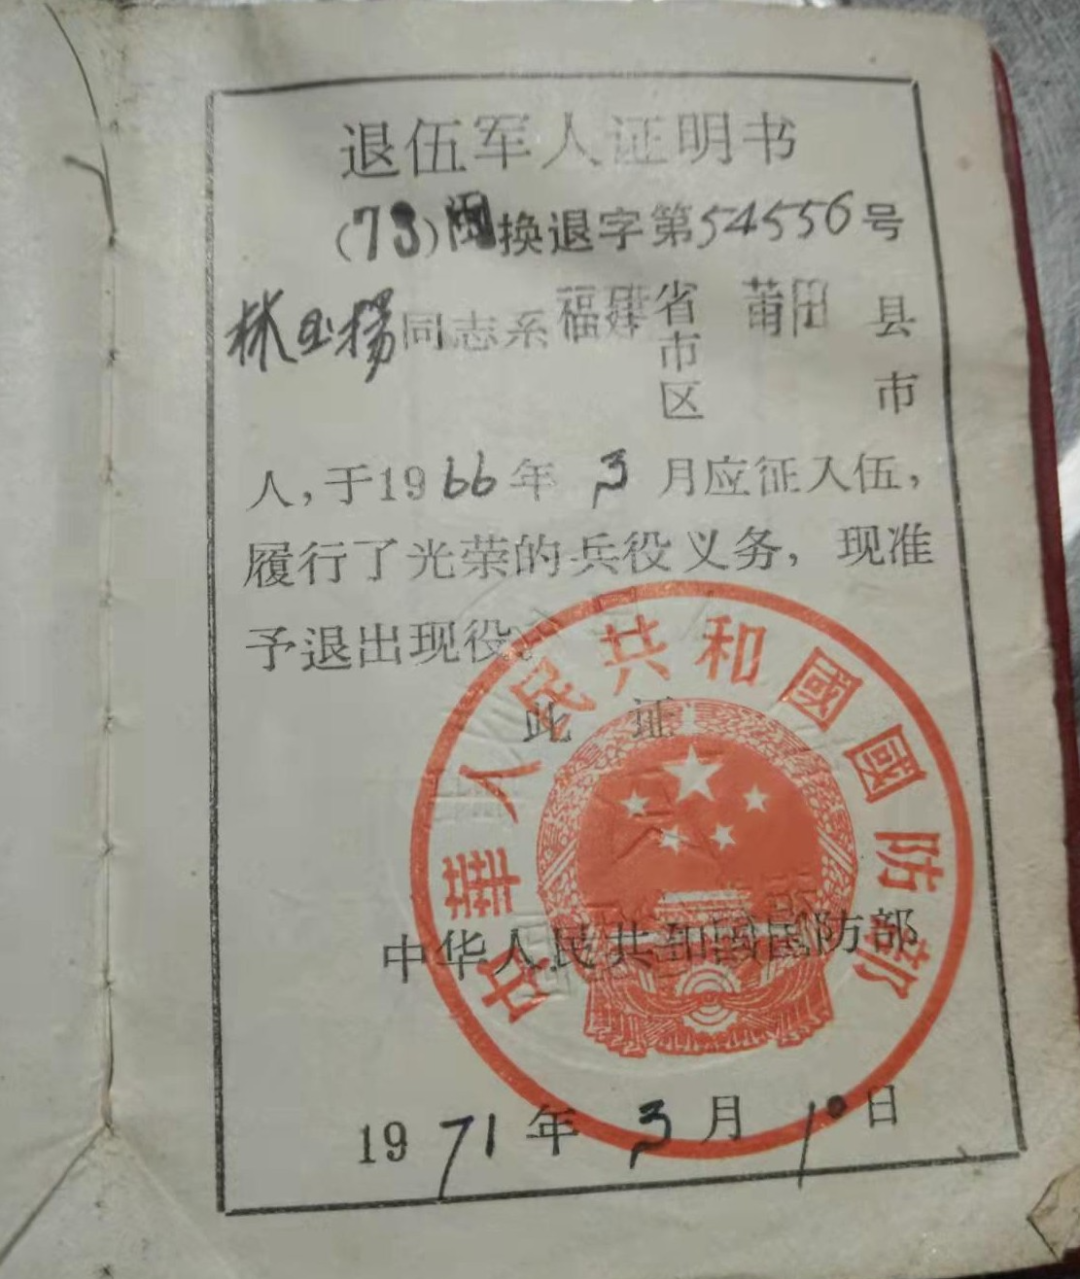 退伍军人证明书
(73)闽换退字第54556号
林玉揚同志系福建省市区莆田县市
人,于1966年3月应征入伍,
履行了光荣的兵役义务,现准
予退出现役。
此证
中华人民共和国国防部
1971年3月1日
中華人民共和國國防部